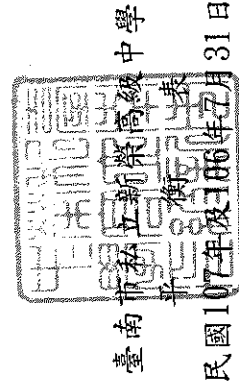 臺南市私立新榮高級中學
平衡表
民國107年及106年7月31日